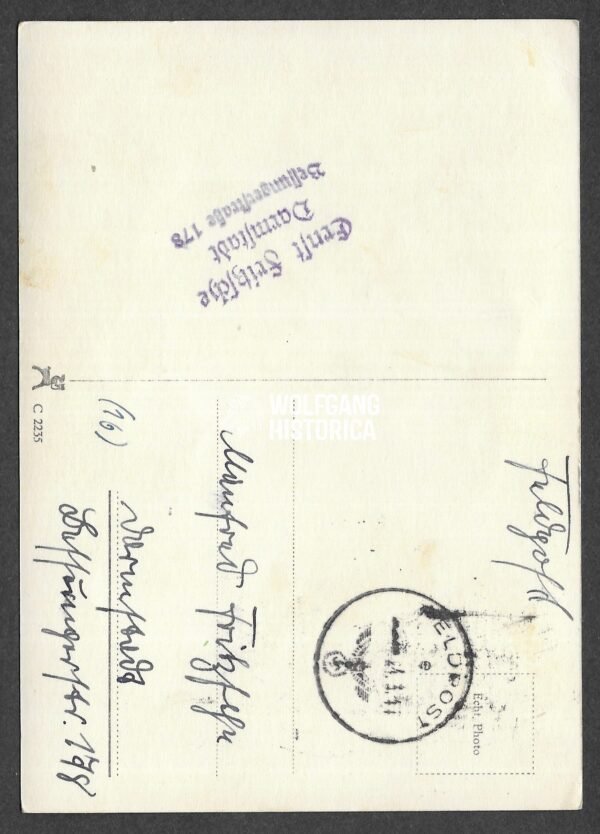 Ernst Fritzsche
Darmstadt
Bessungerstraße 178
Feldpost
FELDPOST
e
Echt. Photo
WOLFGANG
HISTORICA
Manfred Fritzsche
(16)
Darmstadt
Bessungerstr. 178
C 2235